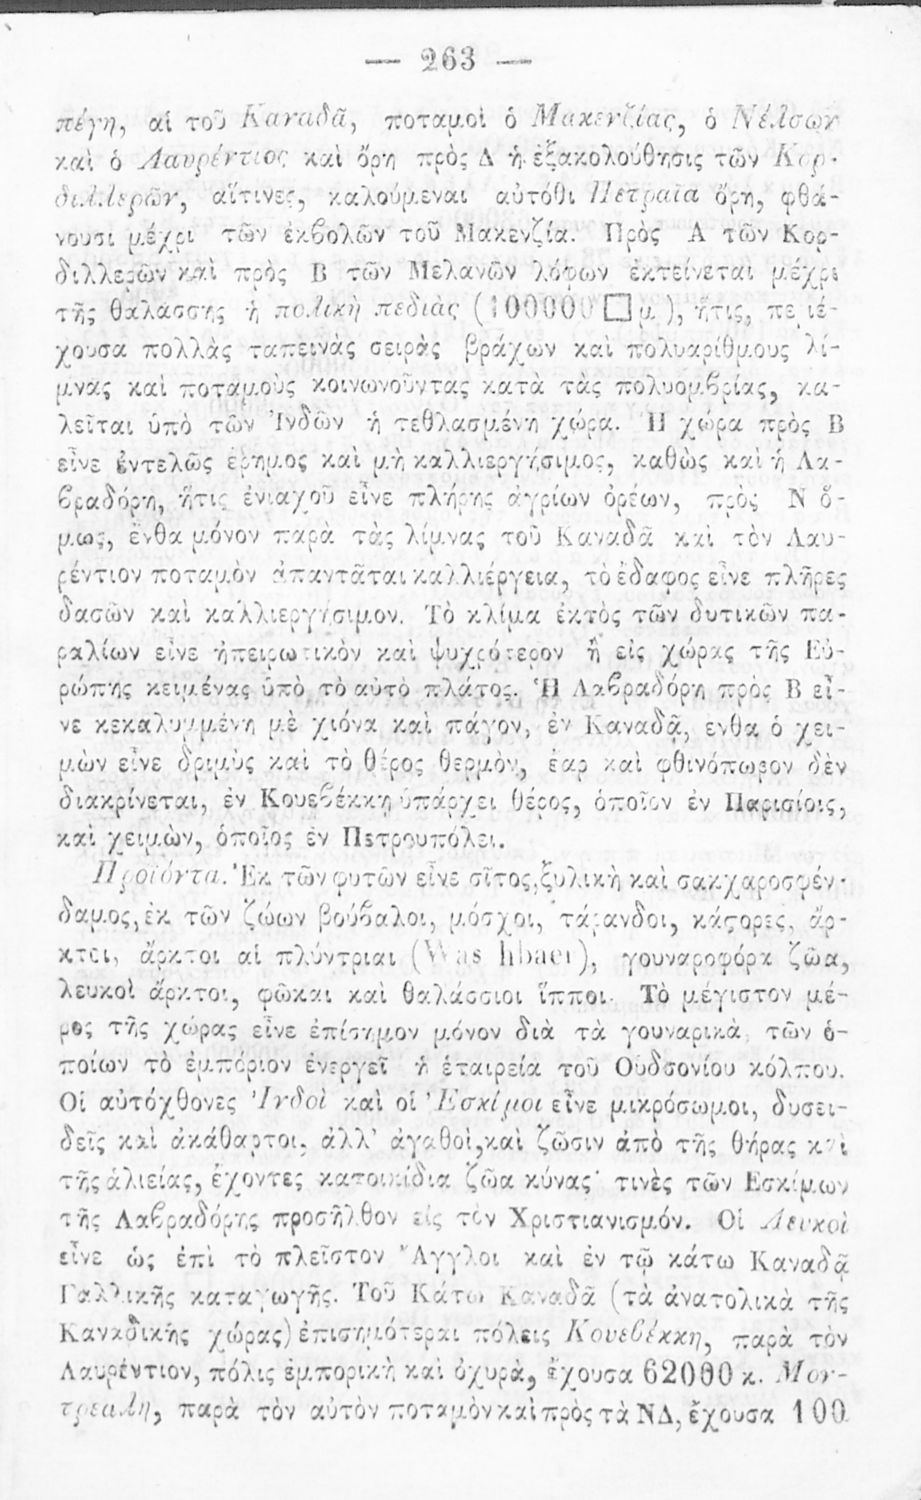 — 263 —
πέγη, αἱ τοῦ Καναδᾶ, ποταμοὶ ὁ Μακενζίας, ὁ Νέλσων
καὶ ὁ Λαυρέντιος καὶ ὄρη πρὸς Δ ἡ ἐξακολούθησις τῶν Κορ-
διλλερῶν, αἵτινες, καλούμεναι αὐτόθι Πετραῖα ὄρη, φθά-
νουσι μέχρι τῶν ἐκβολῶν τοῦ Μακενζία. Πρὸς Α τῶν Κορ-
διλλερῶν καὶ πρὸς Β τῶν Μελανῶν λόφων ἐκτείνεται μέχρι
τῆς θαλάσσης ἡ πολικὴ πεδιὰς (100000 □ μ.), ἥτις, πε ιέ-
χουσα πολλὰς ταπεινὰς σειρὰς βράχων καὶ πολυαρίθμους λί-
μνας καὶ ποταμοὺς κοινωνοῦντας κατὰ τὰς πολυομβρίας, κα-
λεῖται ὑπὸ τῶν Ἰνδῶν ἡ τεθλασμένη χώρα. Ἡ χώρα πρὸς Β
εἶνε ἐντελῶς ἔρημος καὶ μὴ καλλιεργήσιμος, καθὼς καὶ ἡ Λα-
βραδόρη, ἥτις ἐνιαχοῦ εἶνε πλήρης ἀγρίων ὀρέων, πρὸς Ν ὅ-
μως, ἔνθα μόνον παρὰ τὰς λίμνας τοῦ Καναδᾶ καὶ τὸν Λαυ-
ρέντιον ποταμὸν ἀπαντᾶται καλλιέργεια, τὸ ἔδαφος εἶνε πλῆρες
δασῶν καὶ καλλιεργήσιμον. Τὸ κλίμα ἐκτὸς τῶν δυτικῶν πα-
ραλίων εἶνε ἠπειρωτικὸν καὶ ψυχρότερον ἢ εἰς χώρας τῆς Εὐ-
ρώπης κειμένας ὑπὸ τὸ αὐτὸ πλάτος. Ἡ Λαβραδόρη πρὸς Β εἶ-
νε κεκαλυμμένη μὲ χιόνα καὶ πάγον, ἐν Καναδᾷ, ἔνθα ὁ χει-
μὼν εἶνε δριμὺς καὶ τὸ θέρος θερμὸν, ἔαρ καὶ φθινόπωρον δὲν
διακρίνεται, ἐν Κουεβέκκη ὑπάρχει θέρος, ὁποῖον ἐν Παρισίοις,
καὶ χειμὼν, ὁποῖος ἐν Πετρουπόλει.
Προϊόντα. Ἐκ τῶν φυτῶν εἶνε σῖτος, ξυλικὴ καὶ σακχαροσφέν-
δαμος, ἐκ τῶν ζώων βούβαλοι, μόσχοι, τάρανδοι, κάστορες, ἄρ-
κτοι, ἄρκτοι αἱ πλύντριαι (Was hbaei), γουναροφόρα ζῶα,
λευκοὶ ἄρκτοι, φῶκαι καὶ θαλάσσιοι ἵπποι. Τὸ μέγιστον μέ-
ρος τῆς χώρας εἶνε ἐπίσημον μόνον διὰ τὰ γουναρικά, τῶν ὁ-
ποίων τὸ ἐμπόριον ἐνεργεῖ ἡ ἑταιρεία τοῦ Οὐδσονίου κόλπου.
Οἱ αὐτόχθονες Ἰνδοὶ καὶ οἱ Ἐσκίμοι εἶνε μικρόσωμοι, δυσει-
δεῖς καὶ ἀκάθαρτοι, ἀλλ' ἀγαθοὶ, καὶ ζῶσιν ἀπὸ τῆς θήρας καὶ
τῆς ἁλιείας, ἔχοντες κατοικίδια ζῶα κύνας· τινὲς τῶν Εσκίμων
τῆς Λαβραδόρης προσῆλθον εἰς τὸν Χριστιανισμόν. Οἱ Λευκοὶ
εἶνε ὡς ἐπὶ τὸ πλεῖστον Ἄγγλοι καὶ ἐν τῷ κάτω Καναδᾷ
Γαλλικῆς καταγωγῆς. Τοῦ Κάτω Καναδᾶ (τὰ ἀνατολικὰ τῆς
Καναδικῆς χώρας) ἐπισημότεραι πόλεις Κουεβέκκη, παρὰ τὸν
Λαυρέντιον, πόλις ἐμπορικὴ καὶ ὀχυρὰ, ἔχουσα 62000 κ. Μον-
τρεάλη, παρὰ τὸν αὐτὸν ποταμὸν καὶ πρὸς τὰ ΝΔ, ἔχουσα 100